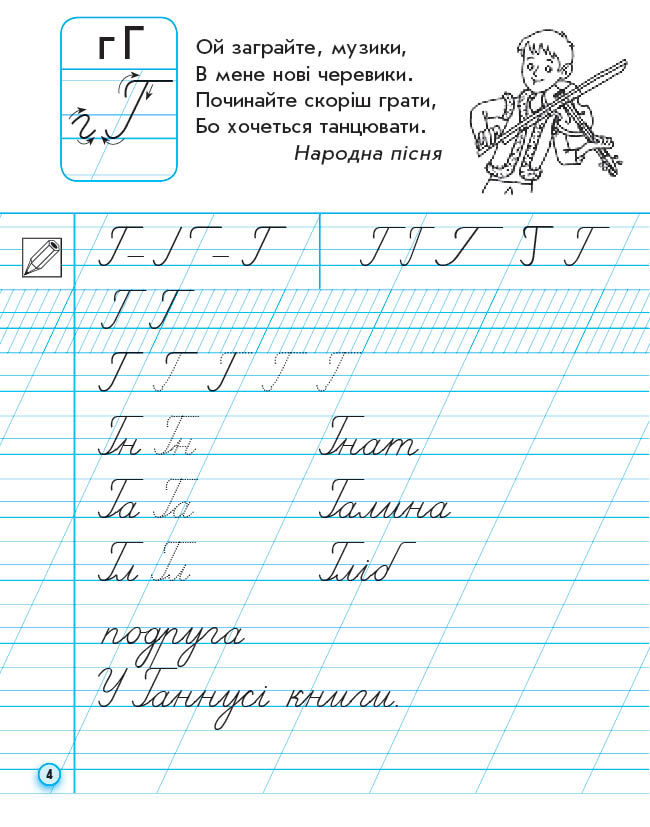 г Г
г Г
Ой заграйте, музики,
В мене нові черевики.
Починайте скоріш грати,
Бо хочеться танцювати.
Народна пісня
Г – Г – Г Г Г Г Г Г
Г Г
Г Г Г Г Г
Гн Гн Гнат
Га Га Галина
Гл Гл Гліб
подруга
У Ганнусі книги.
4